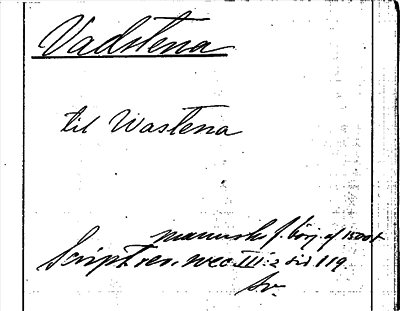 Vadstena
til Wastena
manuskr. f. börj. af 1500t.
Script. rer. svec. III:2 sid 119.
Sv.